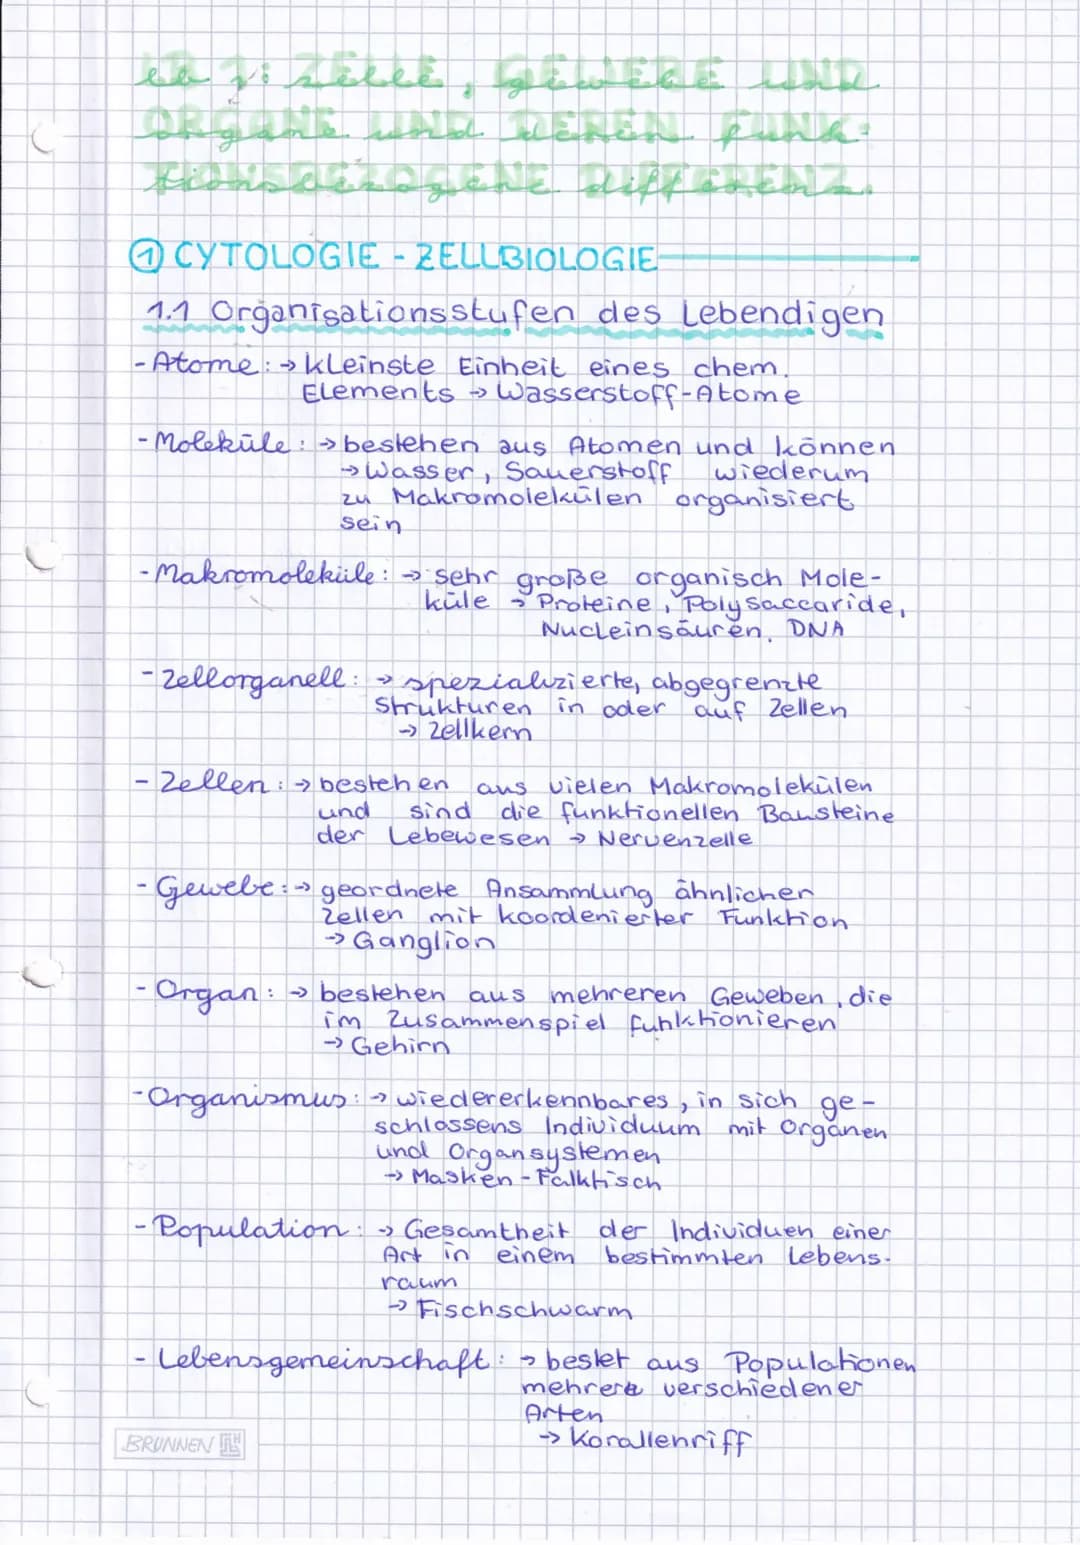 LB 1: ZELLE, GEWEBE UND
ORGANE UND DEREN FUNK-
TIONSBEZOGENE DIFFERENZ.
① CYTOLOGIE - ZELLBIOLOGIE
1.1 Organisationsstufen des Lebendigen
- Atome: → kleinste Einheit eines chem.
Elements → Wasserstoff-Atome
- Moleküle: → bestehen aus Atomen und können
→ Wasser, Sauerstoff wiederum
zu Makromolekülen organisiert
sein
- Makromoleküle: → sehr große organisch Mole-
küle → Proteine, Polysaccaride,
Nucleinsäuren, DNA
- Zellorganell: → spezializierte, abgegrenzte
Strukturen in oder auf Zellen
→ Zellkern
- Zellen: → bestehen aus vielen Makromolekülen
und sind die funktionellen Bausteine
der Lebewesen → Nervenzelle
- Gewebe: → geordnete Ansammlung ähnlicher
Zellen mit koordenierter Funktion
→ Ganglion
- Organ: → bestehen aus mehreren Geweben, die
im Zusammenspiel funktionieren
→ Gehirn
- Organismus: → wiedererkennbares, in sich ge-
schlossens Individuum mit Organen
und Organsystemen
→ Masken-Falktisch
- Population: → Gesamtheit der Individuen einer
Art in einem bestimmten Lebens-
raum
→ Fischschwarm
- Lebensgemeinschaft: → bestet aus Populationen
mehrere verschiedener
Arten
→ Korallenriff
BRUNNEN